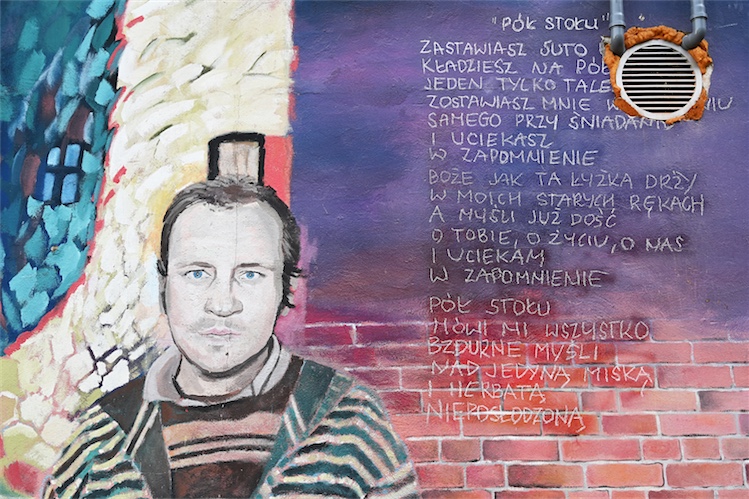 "PÓŁ STOŁU"
ZASTAWIASZ SUTO
KŁADZIESZ NA PÓŁ
JEDEN TYLKO
ZOSTAWIASZ MNIE
SAMEGO PRZY ŚNIADANIU
I UCIEKASZ
W ZAPOMNIENIE
BOŻE JAK TA ŁYŻKA DRŻY
W MOICH STARYCH RĘKACH
A MYŚLI JUŻ DOŚĆ
O TOBIE, O ŻYCIU, O NAS
I UCIEKAM
W ZAPOMNIENIE
PÓŁ STOŁU
MÓWI MI WSZYSTKO
BZDURNE MYŚLI
NAD JEDYNĄ MISKĄ
I HERBATĄ
NIEPOSŁODZONĄ